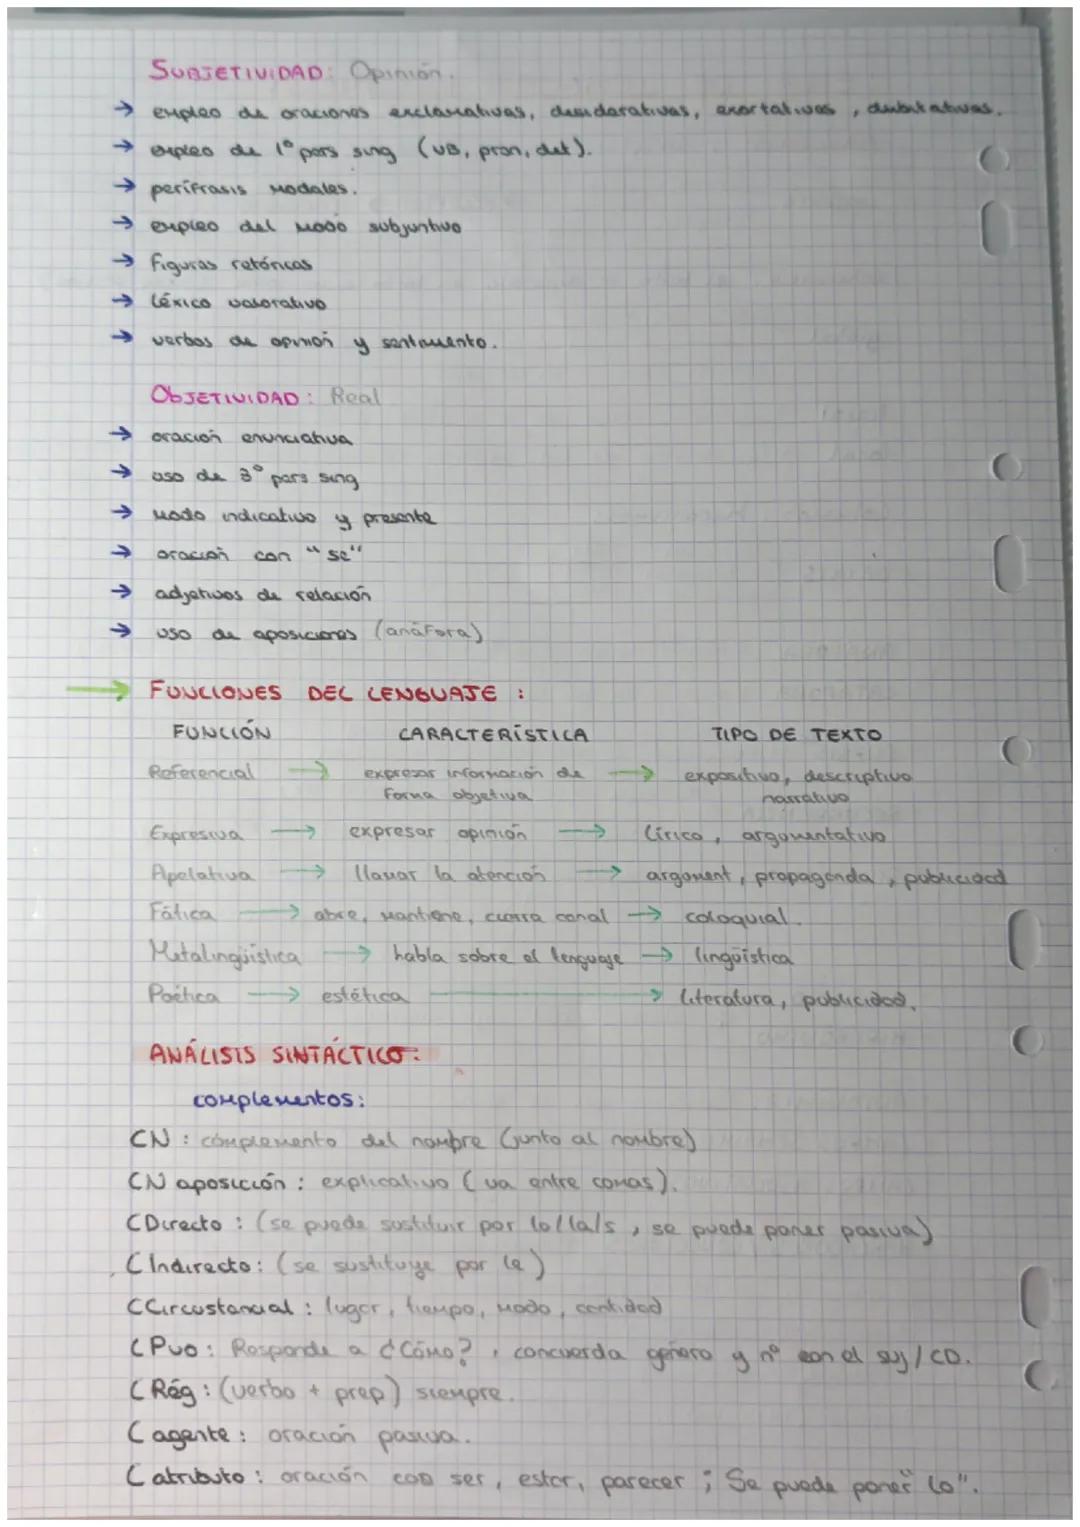 SUBJETIVIDAD: Opinión.
→ empleo de oraciones exclamativas, desiderativas, exortativas, dubitativas.
→ empleo de 1º pers sing (VB, pron, det).
→ perífrasis modales.
→ empleo del modo subjuntivo
→ figuras retóricas
→ léxico valorativo
→ verbos de opinión y sentimiento.
OBJETIVIDAD: Real
→ oración enunciativa
→ uso de 3º pers sing
→ modo indicativo y presente
→ oración con "se"
→ adjetivos de relación
→ uso de aposiciones (anáfora)
→ FUNCIONES DEL LENGUAJE :
FUNCIÓN CARACTERÍSTICA TIPO DE TEXTO
Referencial → expresar información de → expositivo, descriptivo
forma objetiva narrativo
Expresiva → expresar opinión → lírico, argumentativo
Apelativa → llamar la atención → argument, propaganda, publicidad
Fática → abre, mantiene, cierra canal → coloquial.
Metalingüística → habla sobre el lenguaje → lingüística
Poética → estética → literatura, publicidad.
ANÁLISIS SINTÁCTICO:
complementos:
CN : complemento del nombre (junto al nombre)
CN aposición : explicativo (va entre comas).
CDirecto : (se puede sustituir por lo/la/s, se puede poner pasiva)
CIndirecto: (se sustituye por le)
CCircustancial : lugar, tiempo, modo, cantidad
CPvo : Responde a ¿Cómo?, concuerda género y nº con el suj/CD.
CRég : (verbo + prep) siempre.
Cagente : oración pasiva.
Catributo : oración con ser, estar, parecer ; Se puede poner "lo".